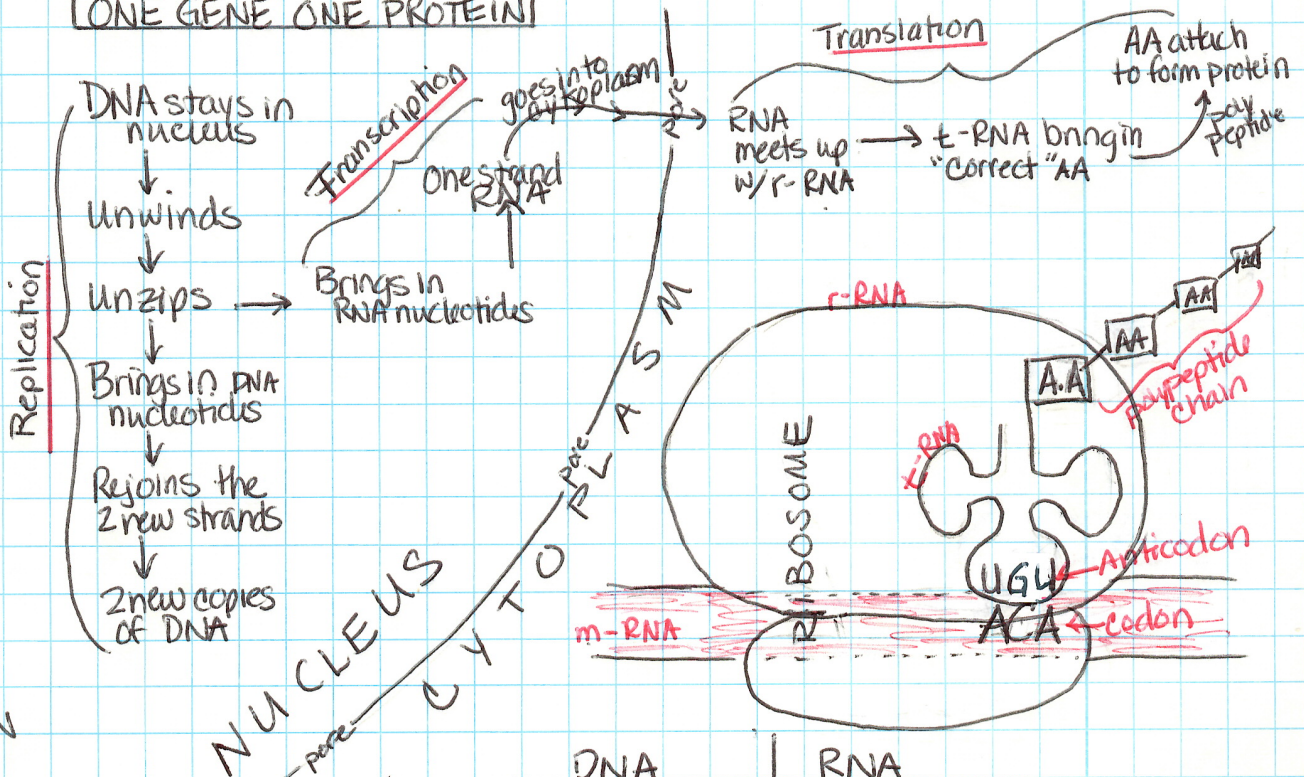 ONE GENE ONE PROTEIN
Replication
DNA stays in
nucleus
Unwinds
Unzips
Brings in DNA
nucleotides
Rejoins the
2 new strands
2 new copies
of DNA
Transcription
Brings in
RNA nucleotides
One strand
RNA
goes into
cytoplasm
pore
Translation
RNA
meets up
w/r-RNA
t-RNA bring in
"Correct" AA
AA attach
to form protein
poly
peptide
NUCLEUS
CYTOPLASM
pore
pore
r-RNA
RIBOSOME
t-RNA
A.A
AA
AA
AA
polypeptide
chain
UGU
Anticodon
m-RNA
ACA
codon
DNA
RNA